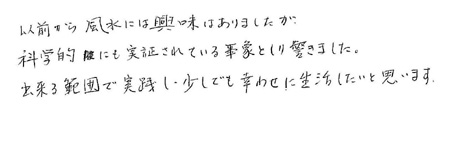 以前から風水には興味はありましたが
科学的にも実証されている事象としり驚きました。
出来る範囲で実践し少しでも幸わせに生活したいと思います.